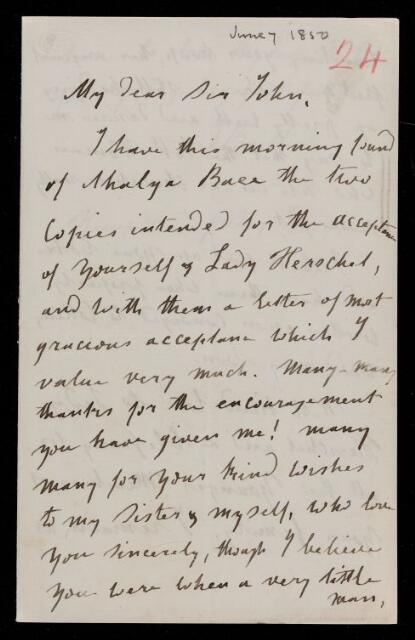 June 7 1850
24
My Dear Sir John,
I have this morning found
of Ahalya Baee the two
Copies intended for the acceptance
of Yourself & Lady Herschel,
and with them a letter of most
gracious acceptance which I
value very much. Many-many
thanks for the encouragement
you have given me! many
many for your kind wishes
to my Sister & myself, who love
You sincerely, though I believe
You were when a very little
man,